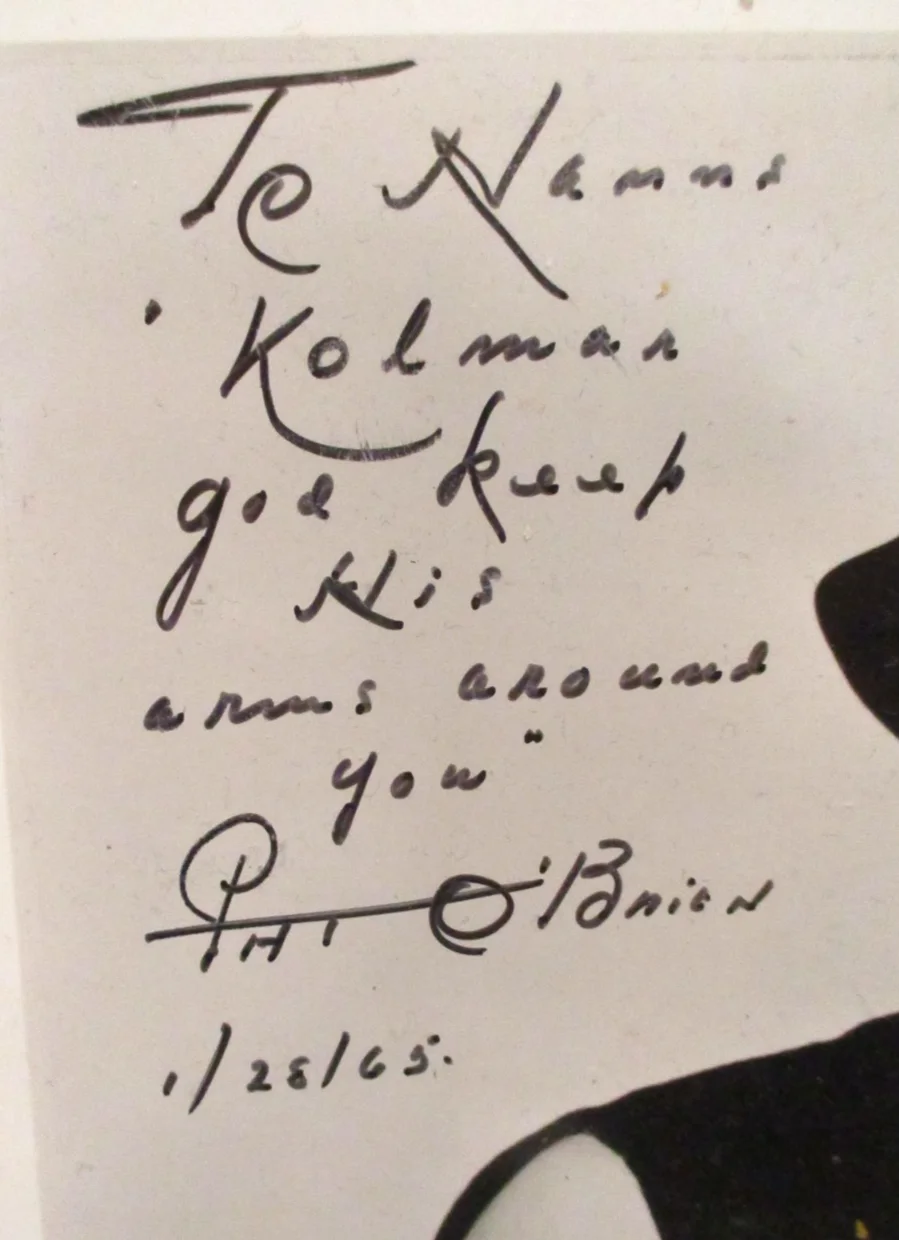 To Hanns
Kolmar
God keep
His
arms around
you"
Pat O'Brien
1/28/65.